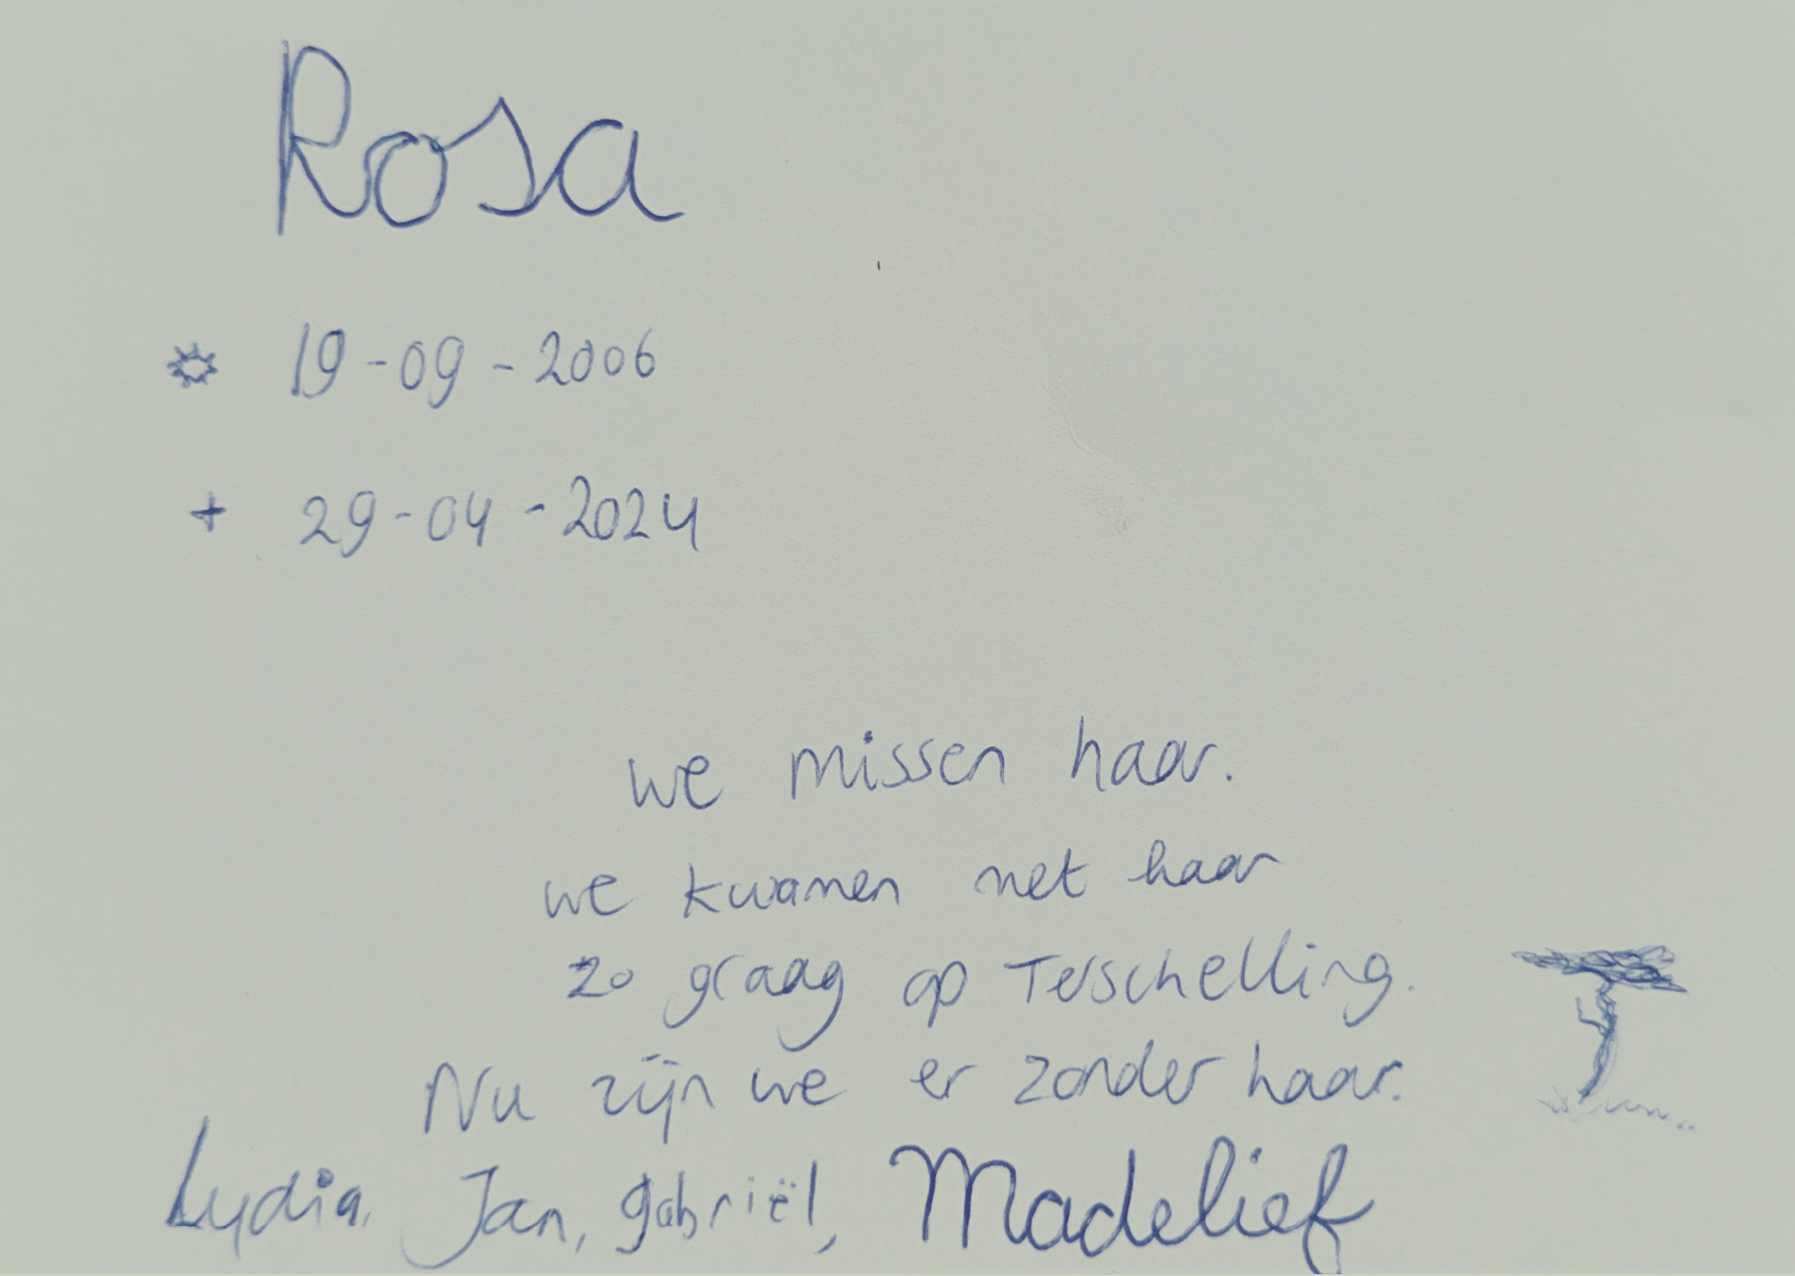 Rosa
☼ 19-09-2006
+ 29-04-2024
we missen haar.
we kwamen met haar
zo graag op Terschelling.
Nu zijn we er zonder haar.
Lydia, Jan, Gabriël, Madelief